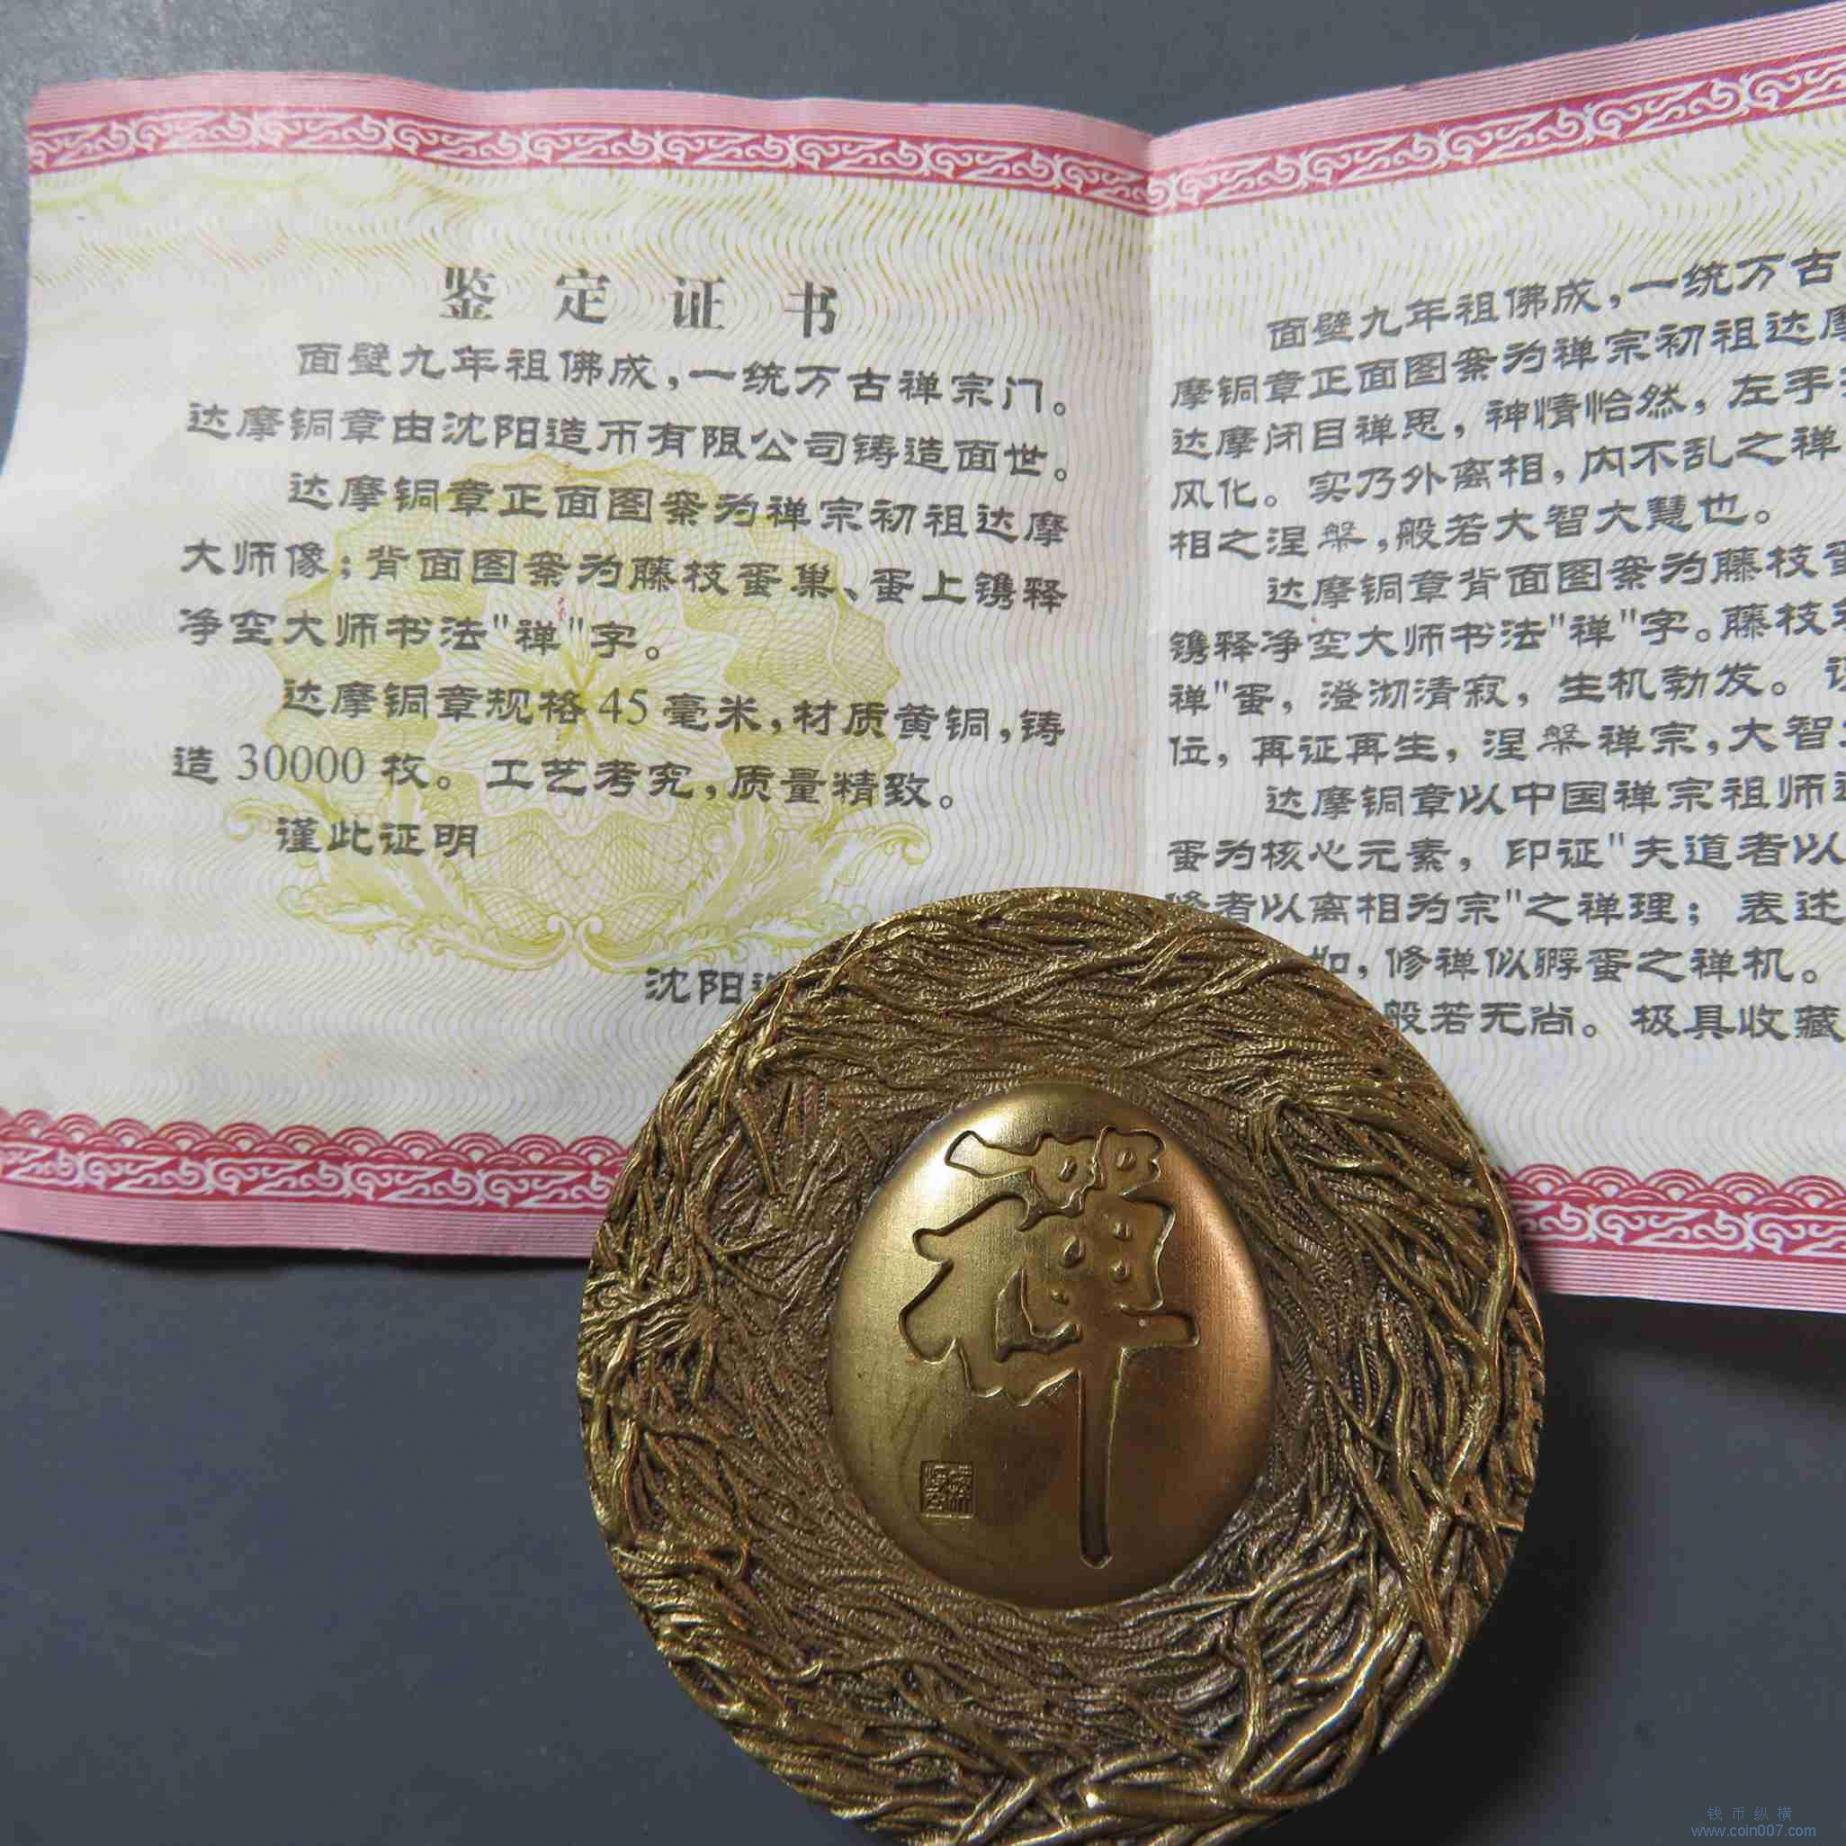 鉴定证书
面壁九年祖佛成，一统万古禅宗门。
达摩铜章由沈阳造币有限公司铸造面世。
达摩铜章正面图案为禅宗初祖达摩
大师像；背面图案为藤枝蛋巢、蛋上镌释
净空大师书法"禅"字。
达摩铜章规格45毫米，材质黄铜，铸
造30000枚。工艺考究，质量精致。
谨此证明
沈阳
面壁九年祖佛成，一统万古
摩铜章正面图案为禅宗初祖达摩
达摩闭目禅思，神情恰然，左手
风化。实乃外离相，内不乱之禅
相之涅槃，般若大智大慧也。
达摩铜章背面图案为藤枝蛋
镌释净空大师书法"禅"字。藤枝
禅"蛋，澄沏清寂，生机勃发。
位，再证再生，涅槃禅宗，大智
达摩铜章以中国禅宗祖师
蛋为核心元素，印证"夫道者以
修者以离相为宗"之禅理；表述
如，修禅似孵蛋之禅机。
般若无尚。极具收藏
禪
钱币纵横
www.coin007.com